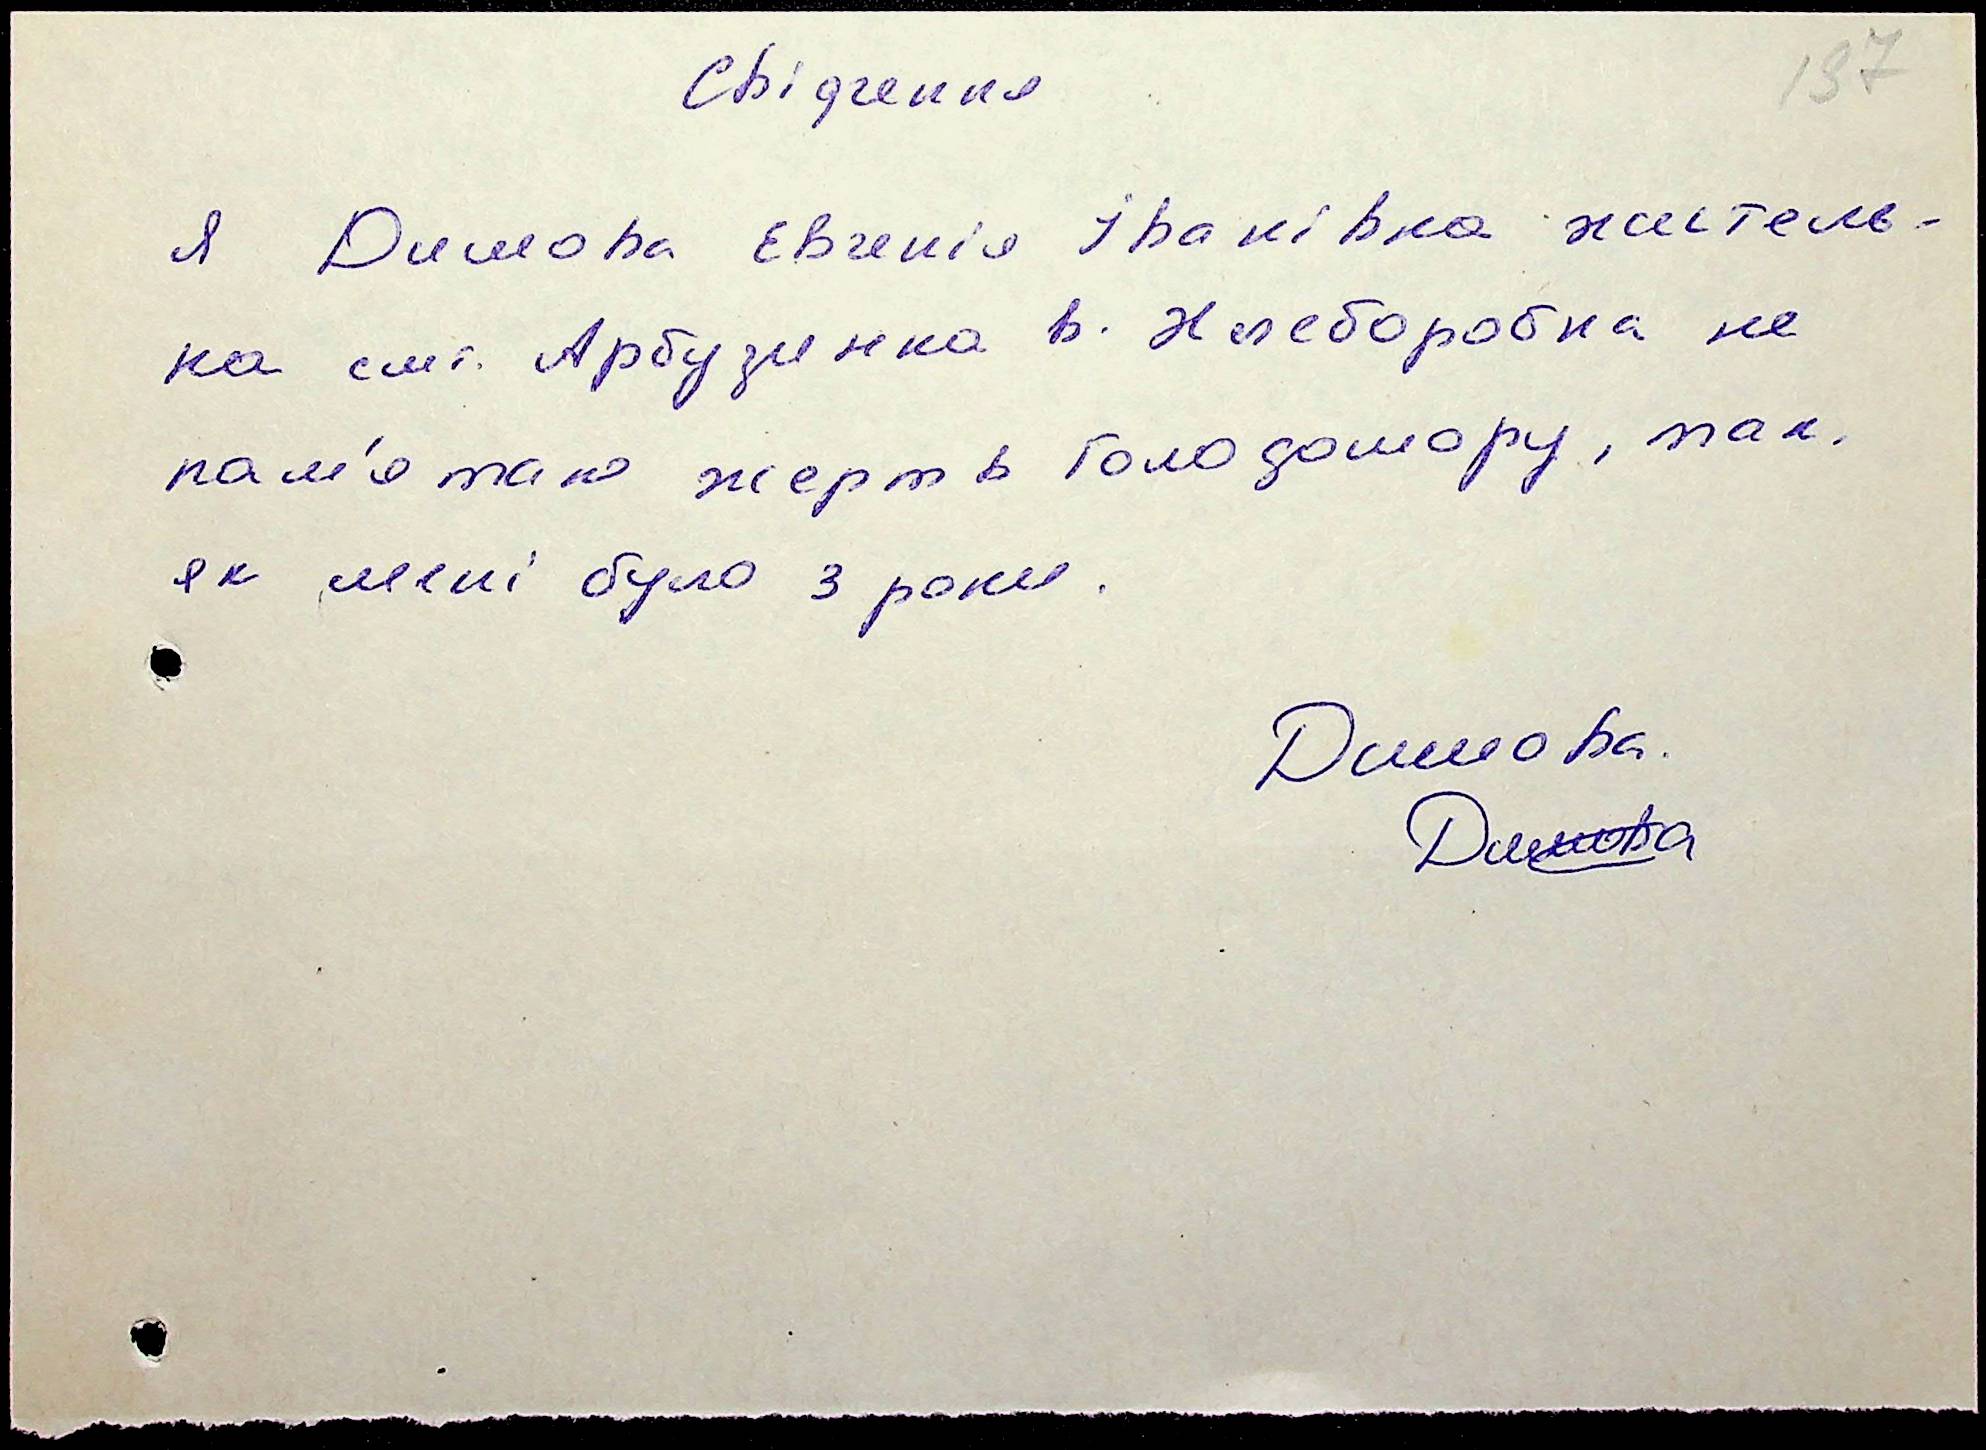 197
Свідчення
Я Димова Євгенія Іванівна житель-
ка смт. Арбузинка в. Хлеборобна не
пам'ятаю жертв Голодомору, так.
як мені було 3 роки.
Димова.
Димова